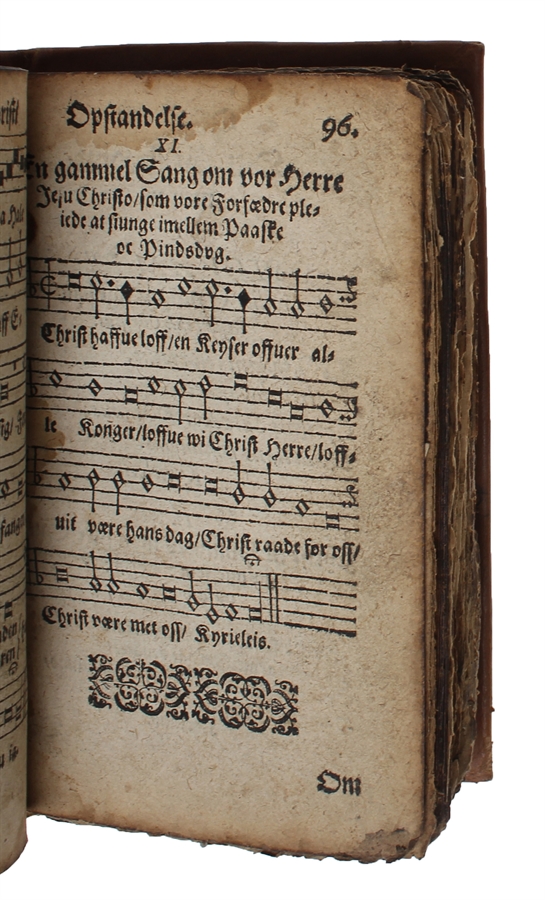 Opstandelse.
96.
XI.
En gammel Sang om vor Herre
Jesu Christo/som vore Forfædre ple-
iede at siunge imellem Paaske
oc Pindsdag.
Christ haffue loff/en Keyser offuer al-
le Konger/loffue wi Christ Herre/loff-
uit være hans dag/Christ raade for oss/
Christ være met oss/ Kyrieleis.
Om